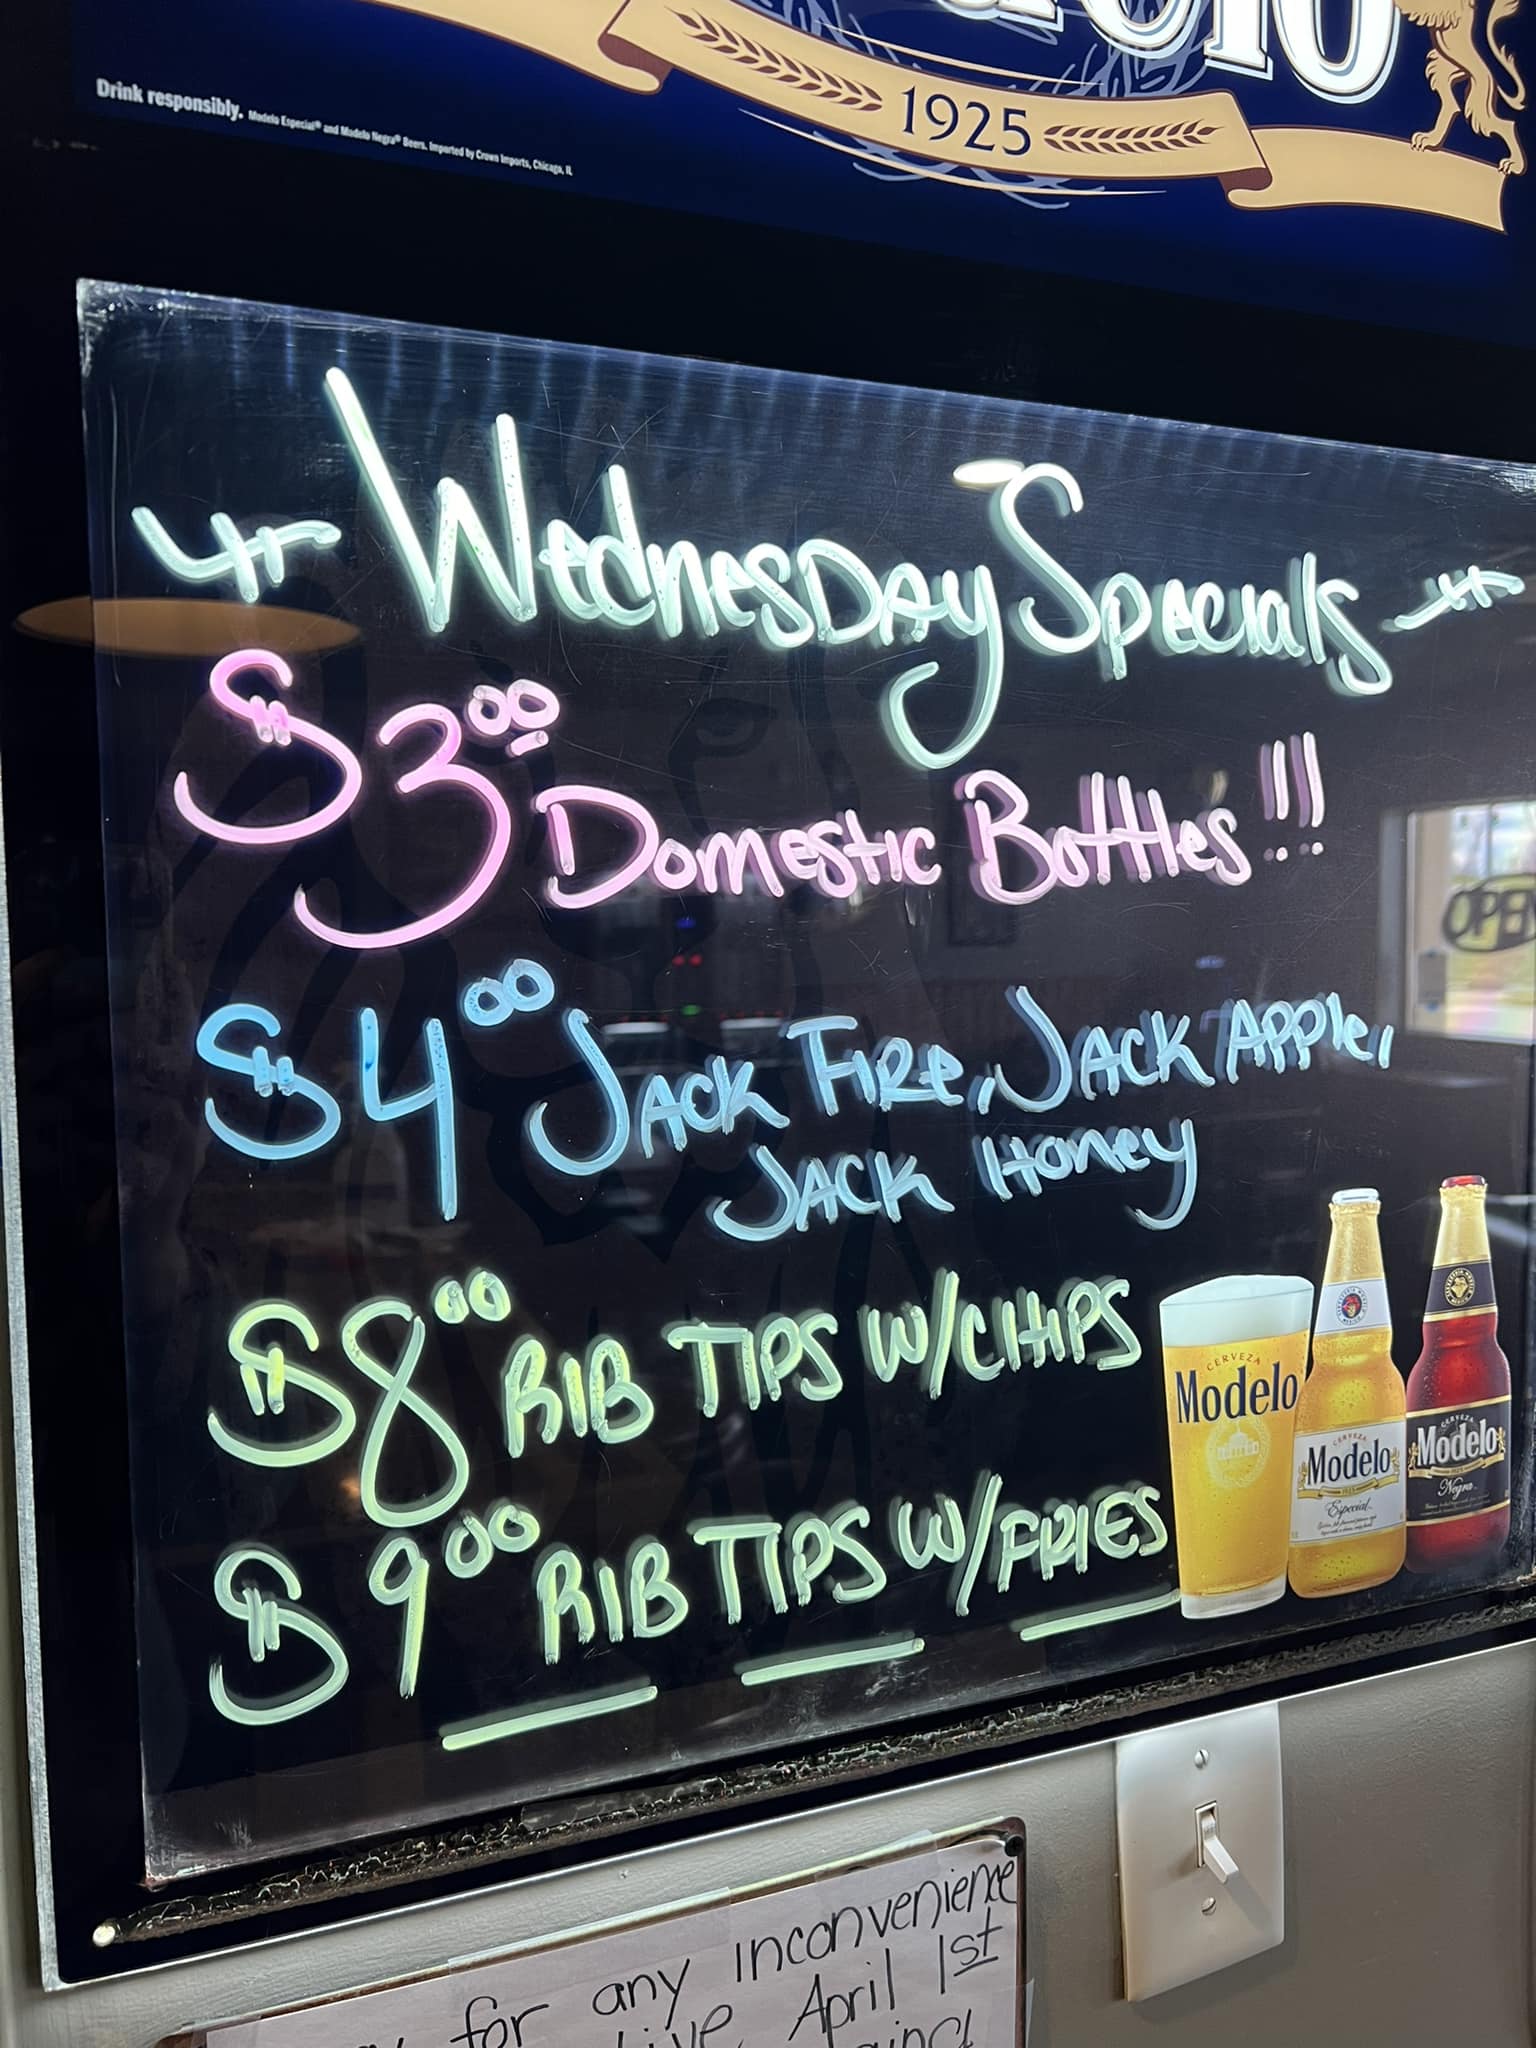 1925
Drink responsibly. Modelo Especial® and Modelo Negra® Beers. Imported by Crown Imports, Chicago, IL
Wednesday Specials
$3.00 Domestic Bottles!!!
$4.00 Jack Fire, Jack Apple,
Jack Honey
$8.00 RIB TIPS W/CHIPS
$9.00 RIB TIPS W/FRIES
OPEN
CERVEZA
Modelo
CERVEZA
Modelo
Especial
CERVEZA
Modelo
Negra
for any inconvenience
April 1st